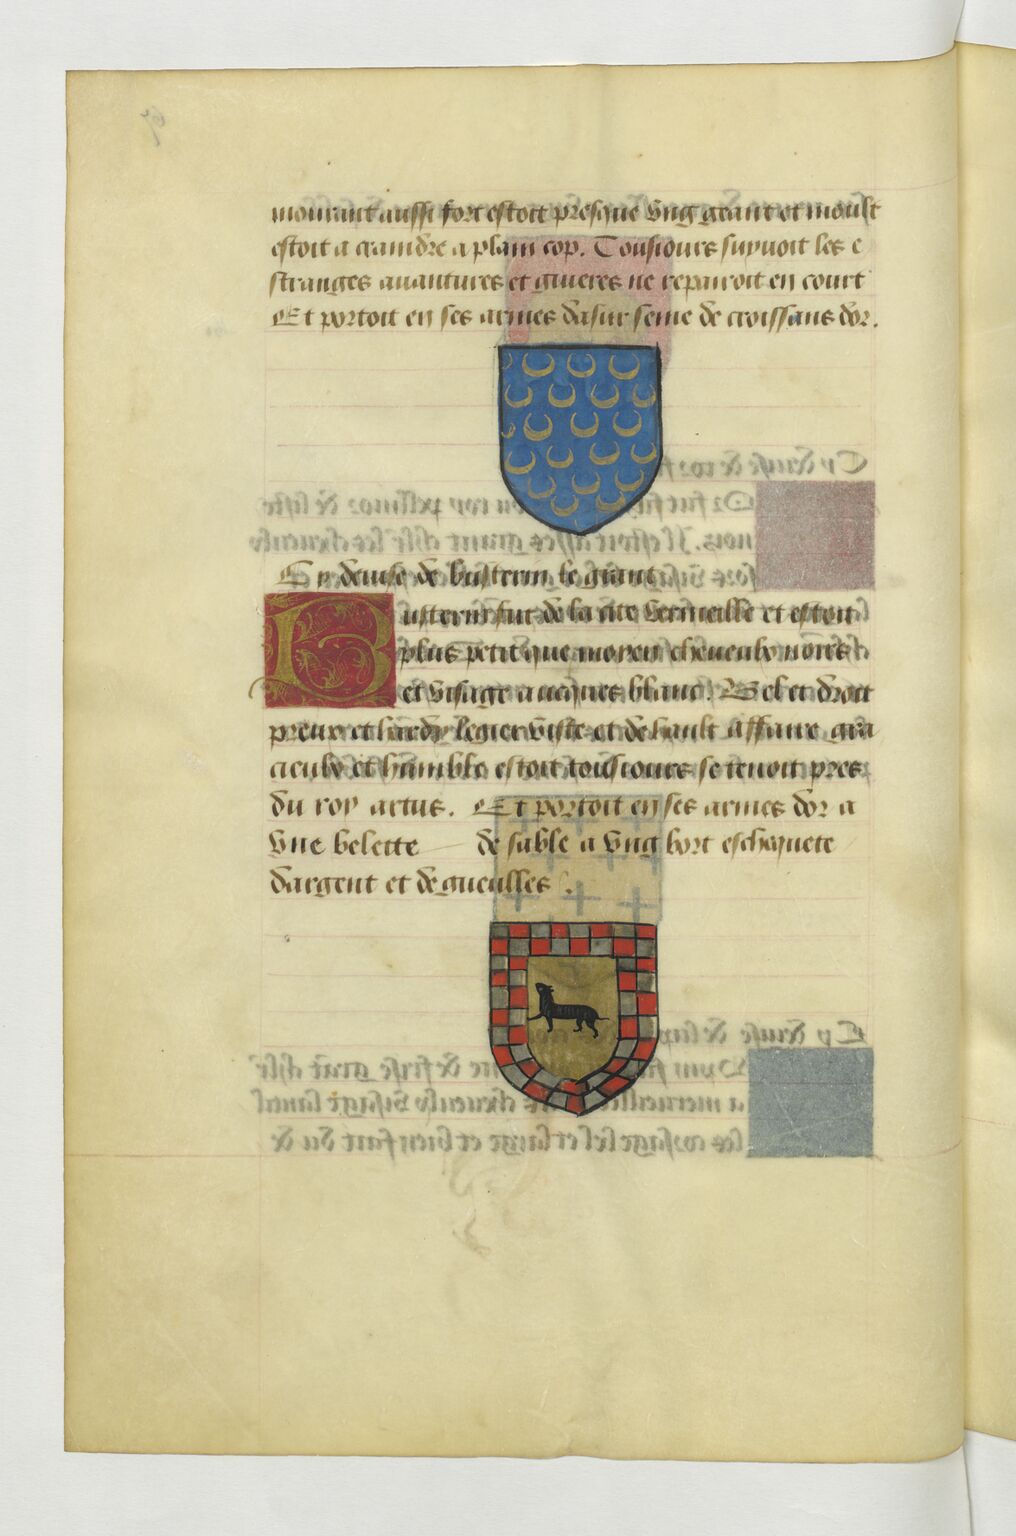 mourant aussi fort estoit presque ung geant et moult
estoit a craindre a plain cop. Tousiours suyuoit les e
stranges auantures et guieres ne repairoit en court
Et portoit en ses armes dasur seme de croissans dor.
Cy deuise de busterin le grant
Busterin fut de la cite vermeille et estoit
plus petit que moyen cheueulx noirs
et visage aucques blanc. Bel et droit
preux et hardy legier viste et de hault affaire gra
cieulx et humble estoit tousiours se tenoit pres
du roy artus. Et portoit en ses armes dor a
vne belette de sable a vng bort eschequete
dargent et de gueulles.